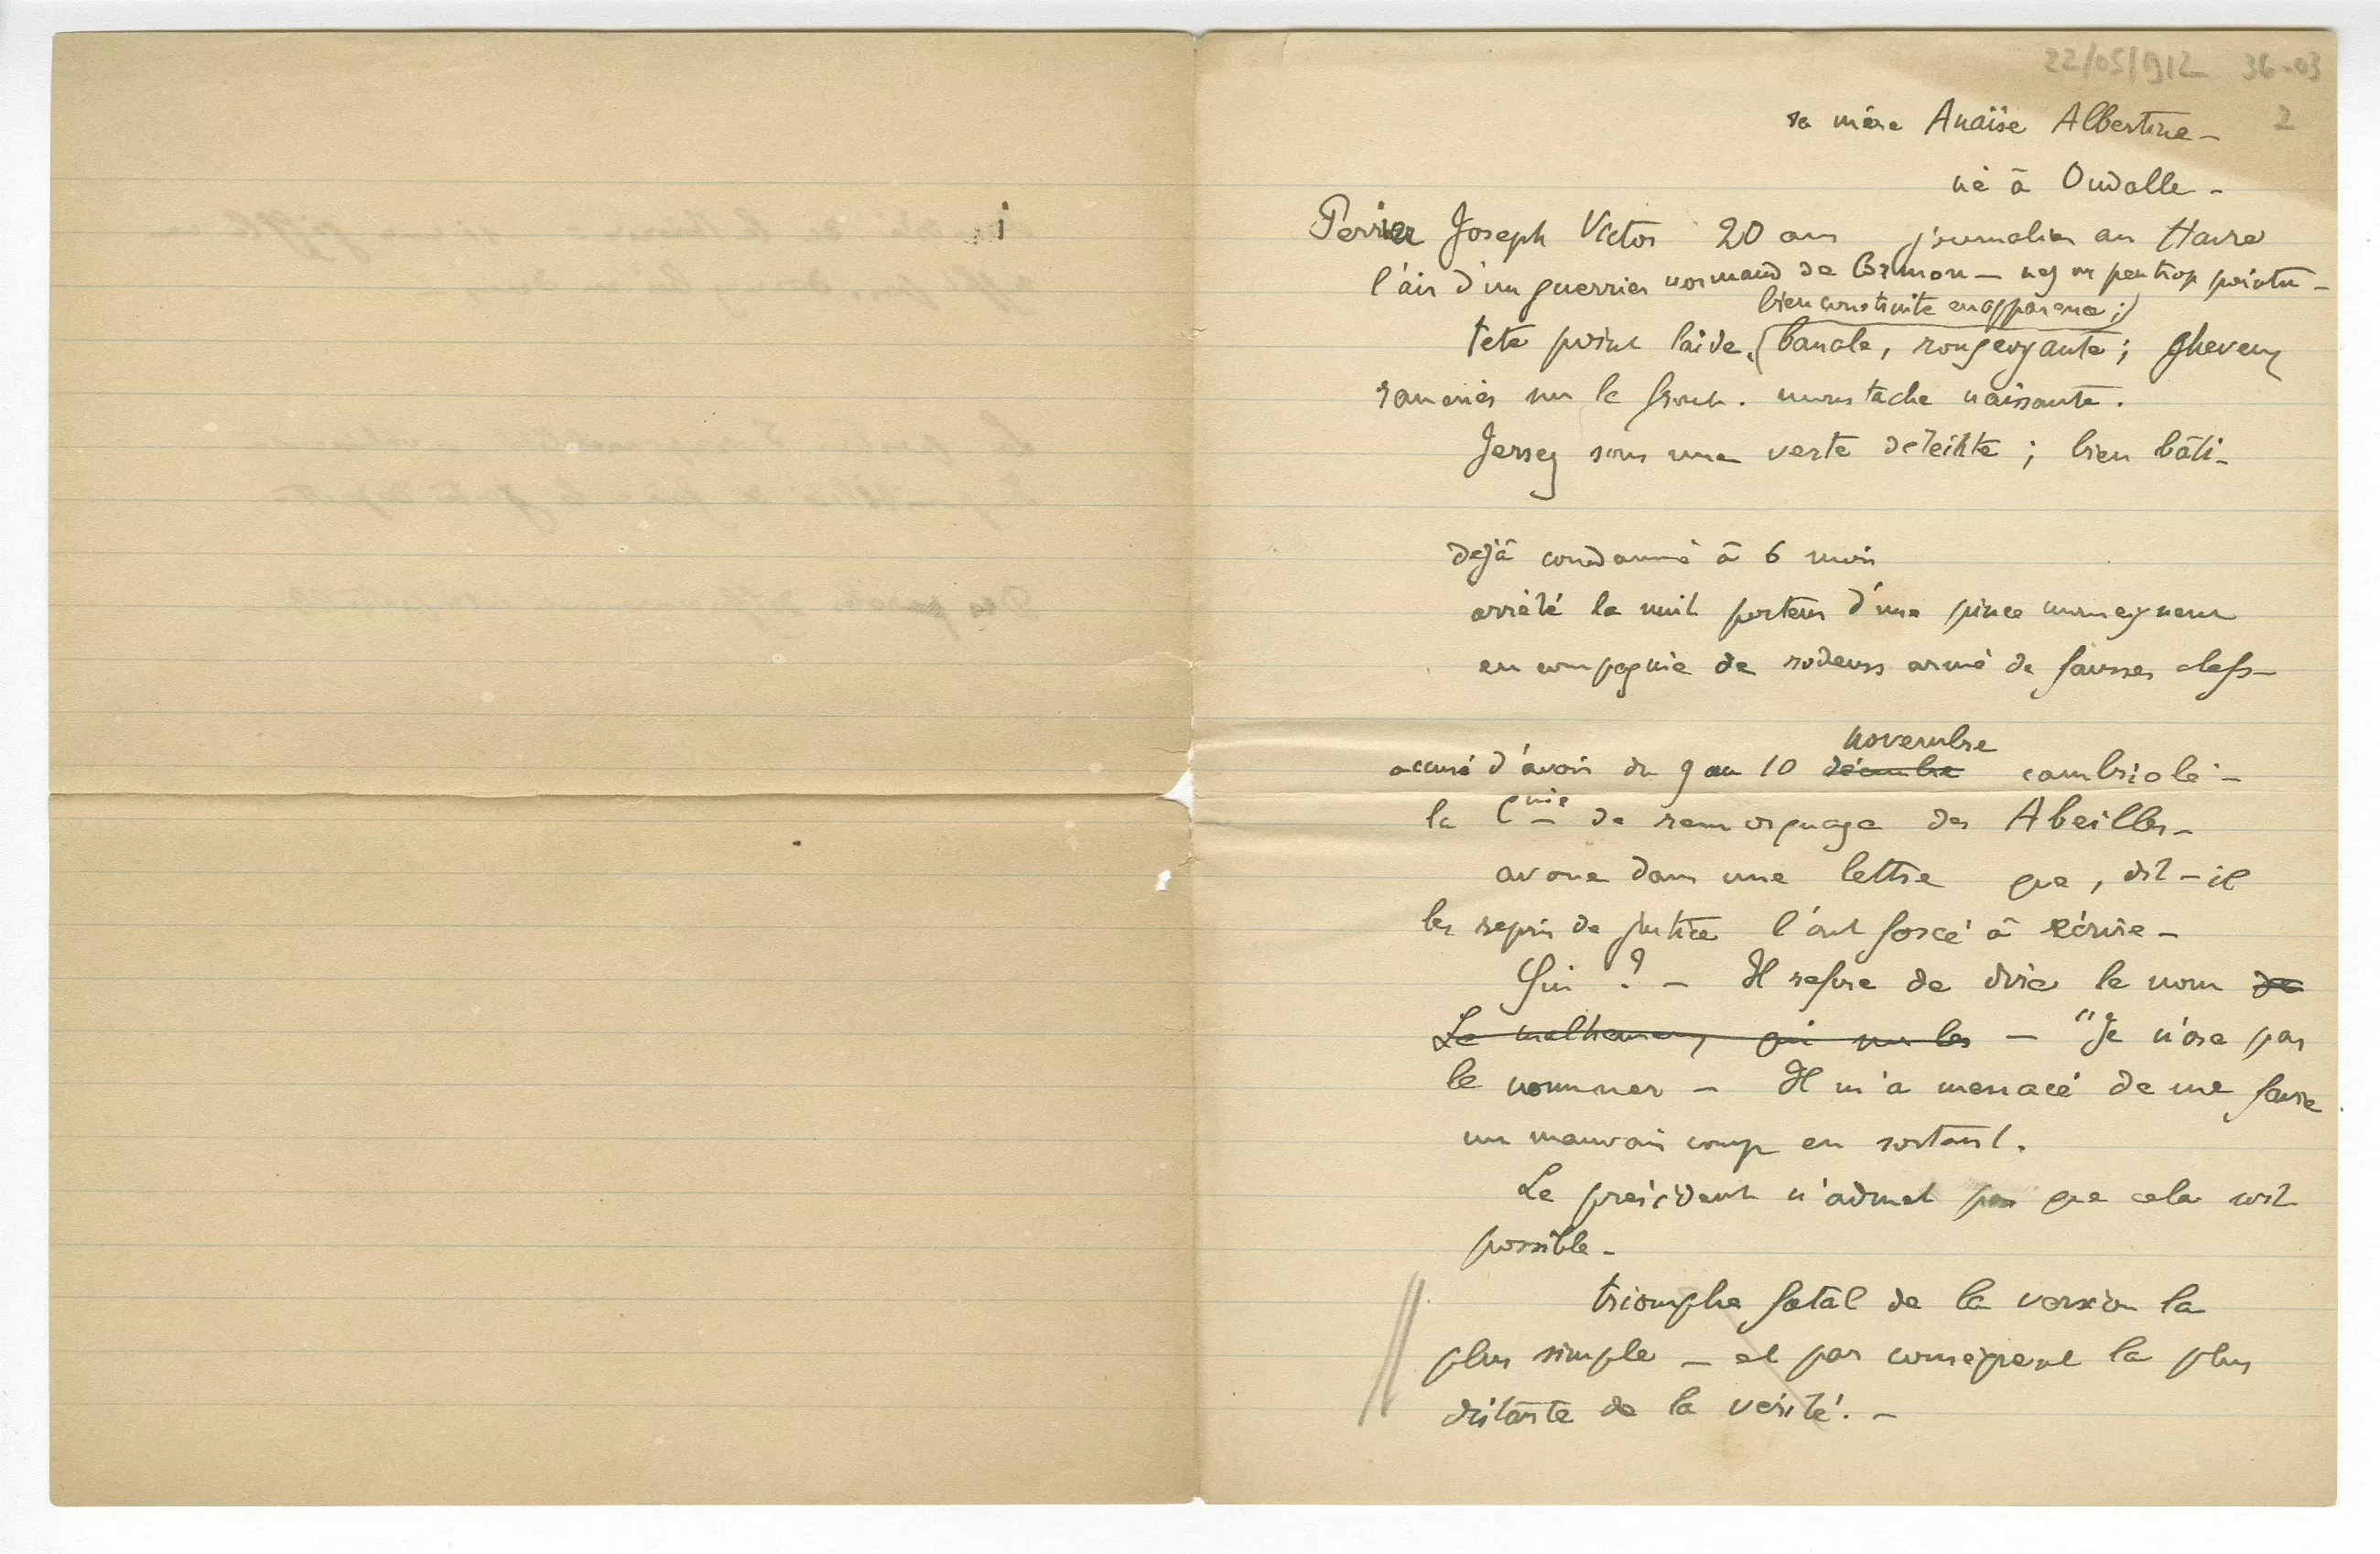 22/05/1912 36-03
2
sa mère Anaïse Albertine –
né à Oudalle –
Perrier Joseph Victor 20 ans journalier au Havre
l'air d'un guerrier normand de Cormon – nez un peu trop pointu –
bien construite en apparence ;)
tete point laide, (banale, rougeoyante ; cheveux
ramenés sur le front. moustache naissante.
Jersey sous une veste déteinte ; bien bâti –
dejà condamné à 6 mois
arrêté la nuit porteur d'une pince monseigneur
en compagnie de rodeurs armé de fausses clefs –
novembre
accusé d'avoir du 9 au 10 décembre cambriolé –
la Cnie de remorquage des Abeilles –
avoue dans une lettre que, dit-il
les repris de justice l'ont forcé à écrire –
Qui ? – Il refuse de dire le nom de
Le malheureux qui sur les – "Je n'ose pas
le nommer – Il m'a menacé de me faire
un mauvais coup en sortant.
Le président n'admet pas que cela soit
possible –
triomphe fatal de la version la
plus simple – et par conséquent la plus
distante de la vérité. –